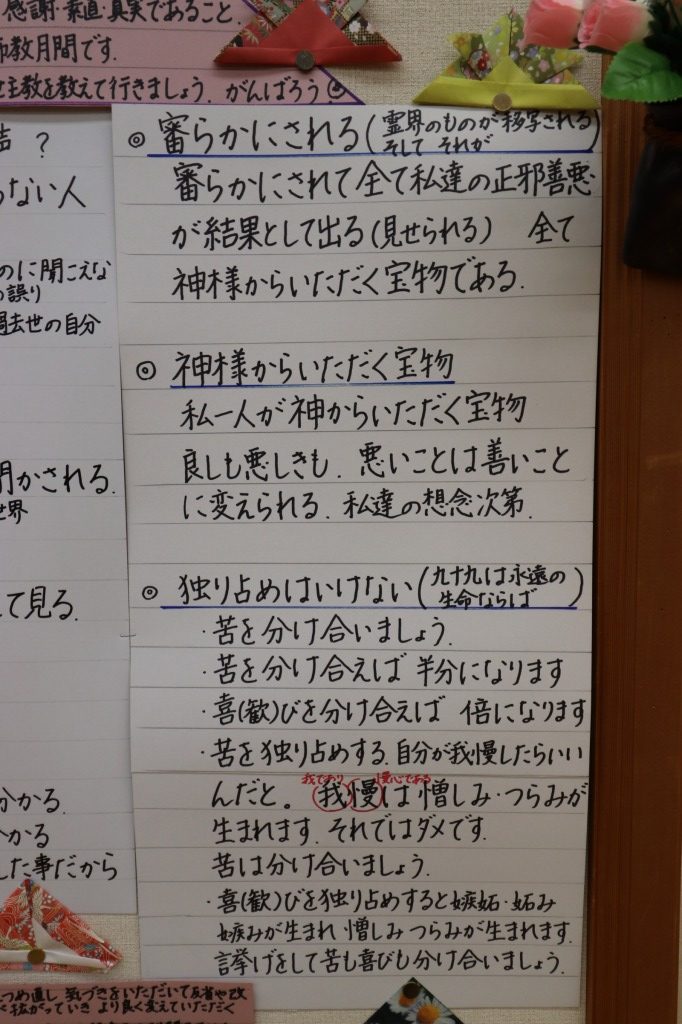 感謝・素直・真実であること。
教月間です。
主教を教えて行きましょう。がんばろう
?
ない人
のに聞こえな
誤り
過去世の自分
明かされる。
世界
て見る。
分かる。
かる
した事だから
◎ 審らかにされる(霊界のものが移写される
そして それが)
審らかにされて全て私達の正邪善悪
が結果として出る(見せられる) 全て
神様からいただく宝物である.
◎ 神様からいただく宝物
私一人が神からいただく宝物
良しも悪しきも. 悪いことは善いこと
に変えられる. 私達の想念次第.
◎ 独り占めはいけない(九十九は永遠の
生命ならば)
・苦を分け合いましょう.
・苦を分け合えば 半分になります
・喜(歓)びを分け合えば 倍になります
・苦を独り占めする. 自分が我慢したらいい
我であり 慢心である
んだと。我慢は憎しみ・つらみが
生まれます. それではダメです.
苦は分け合いましょう.
・喜(歓)びを独り占めすると嫉妬・妬み
嫉みが生まれ 憎しみ つらみが生まれます.
言挙げをして苦も喜びも分け合いましょう.
つめ直し 気づきをいただいて反省や改
拡がっていき より良く変えていただく